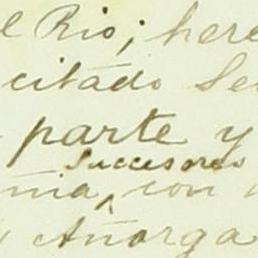 el Rio; here
citado Se
parte y
Sucesores
nia, con
Añorga